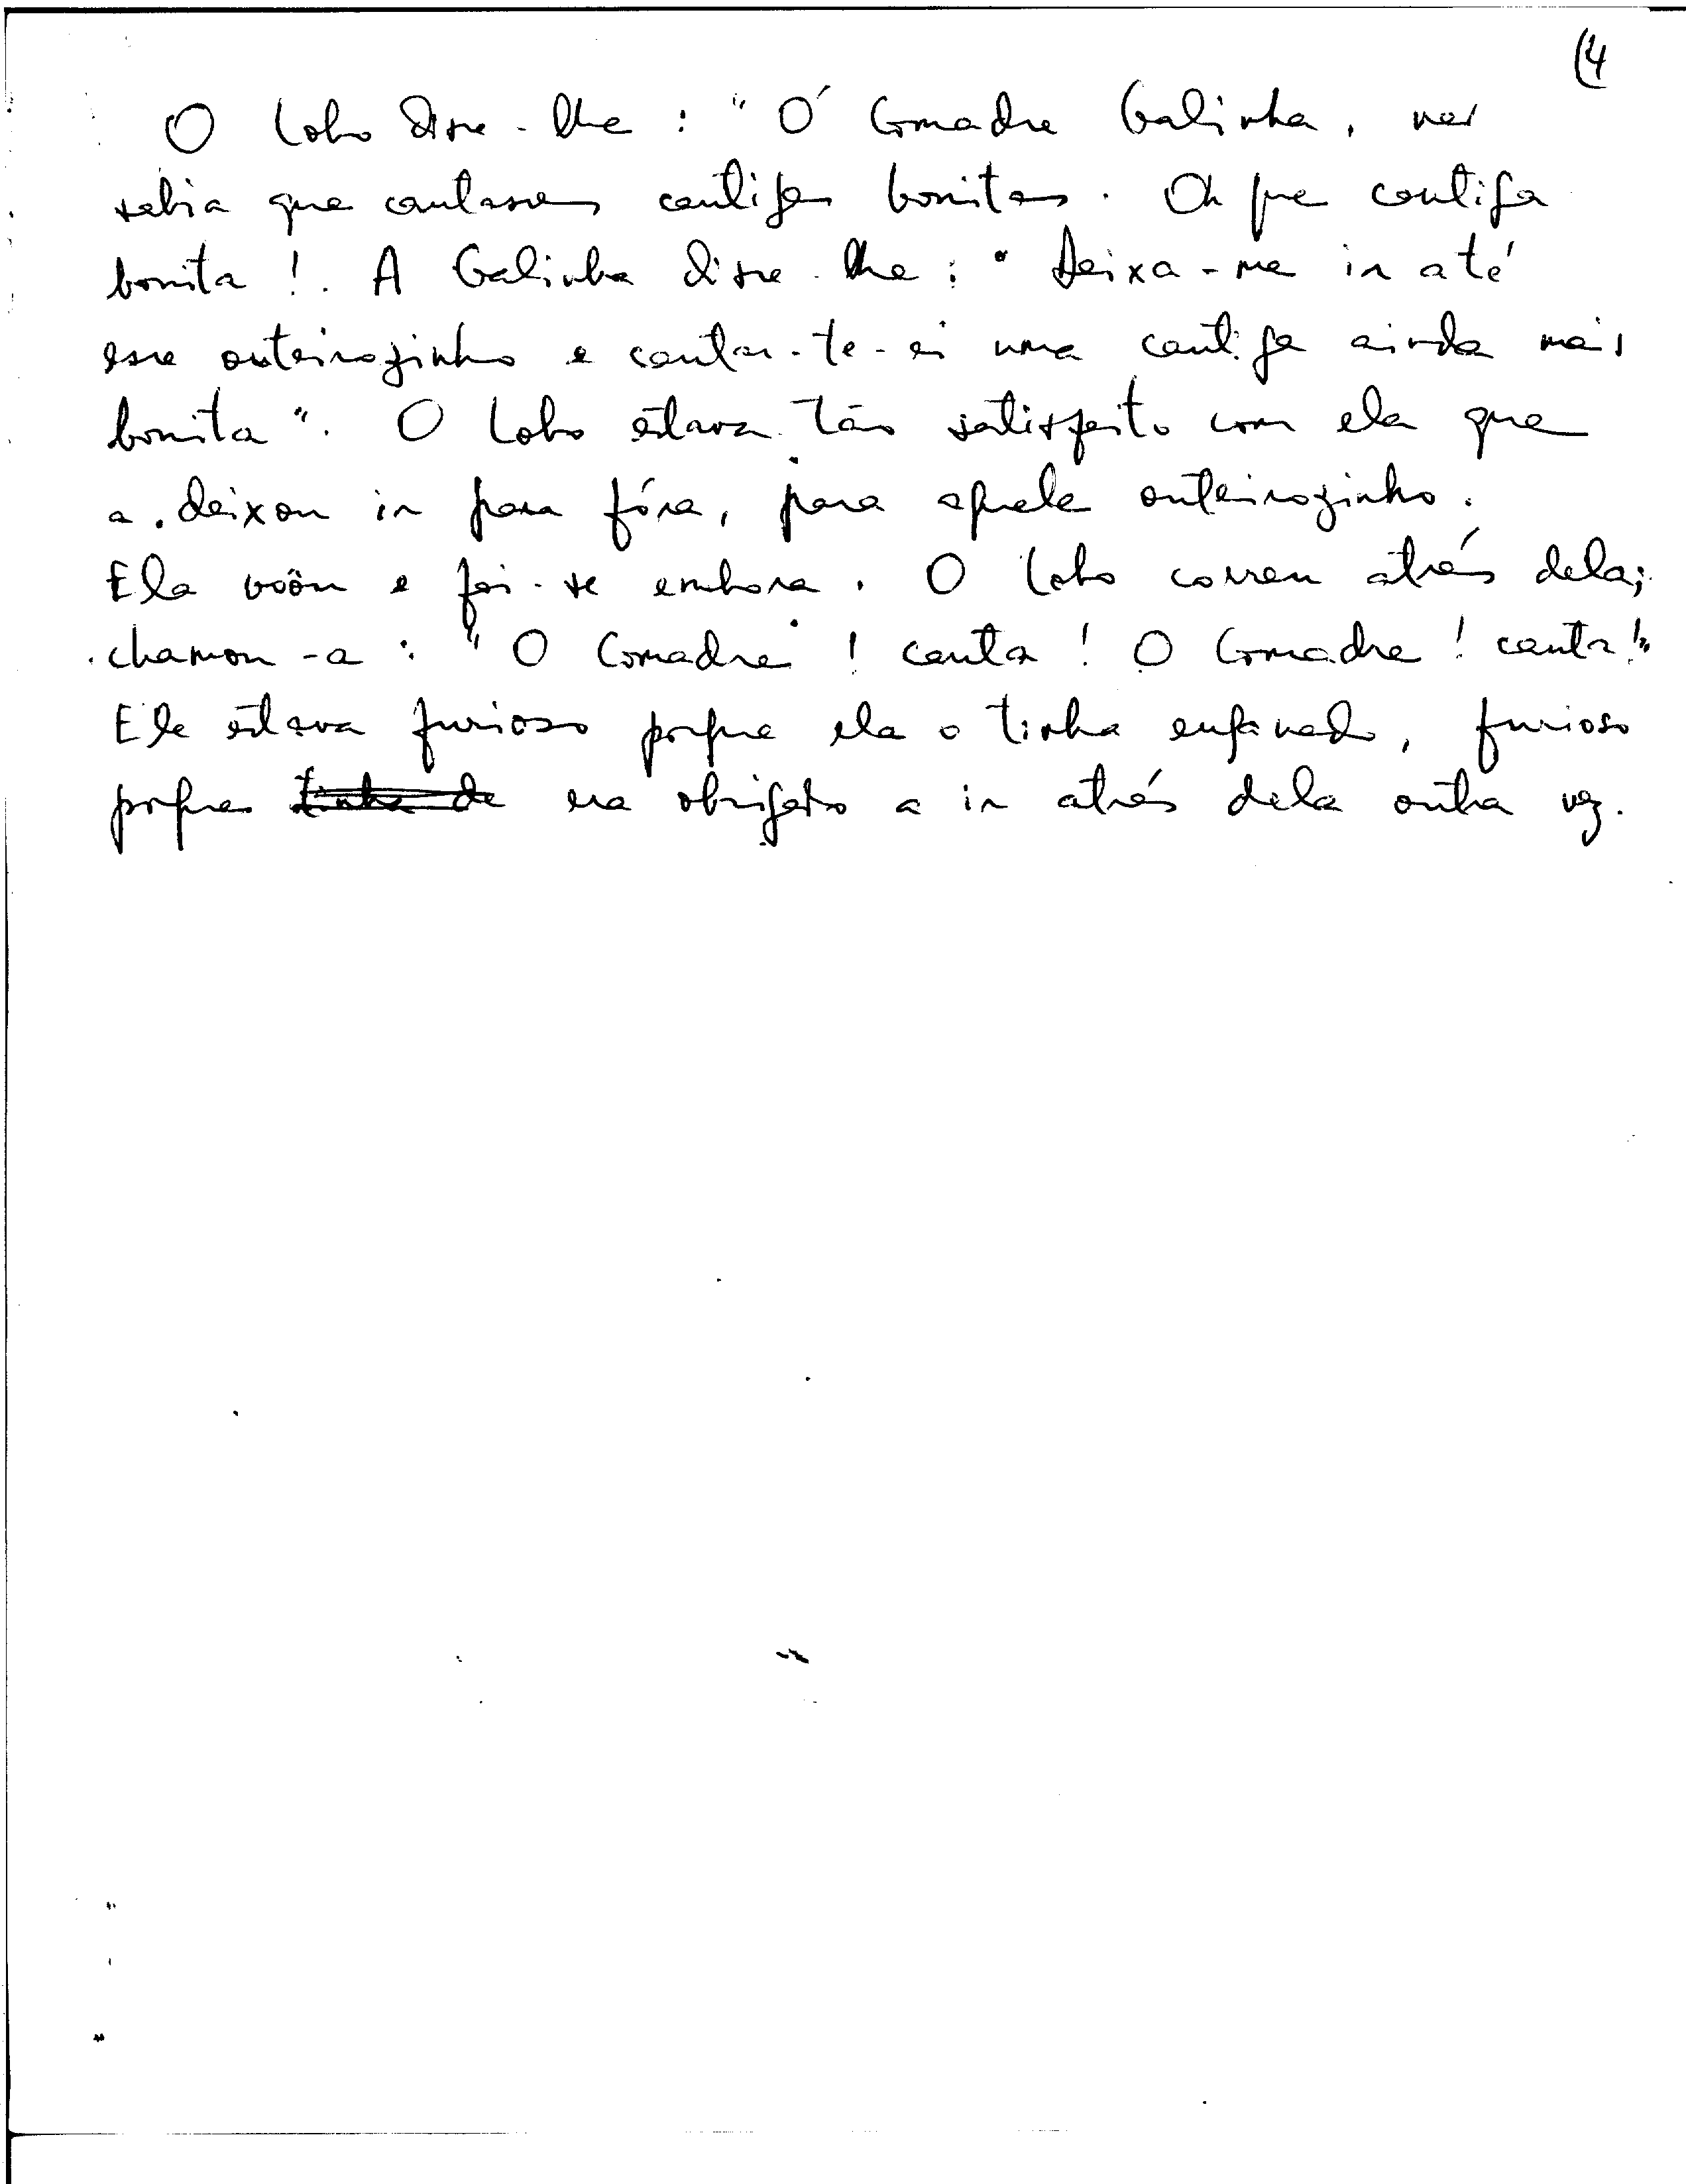 (4
O Lobo disse-lhe : "Ó Comadre Galinha, não
sabia que cantasses cantigas bonitas. Oh que cantiga
bonita !. A Galinha disse-lhe : " Deixa-me ir até
esse outeirozinho e cantar-te-ei uma cantiga ainda mais
bonita ". O Lobo estava tão satisfeito com ela que
a deixou ir para fóra, para aquele outeirozinho.
Ela voôu e foi-se embora. O Lobo correu atrás dela;
chamou-a : " O Comadre ! canta ! O Comadre ! canta !"
Ele estava furioso porque ela o tinha enganado, furioso
porque tinha de era obrigado a ir atrás dela outra vez.